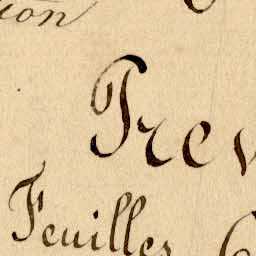 ion
Trev
Feuilles